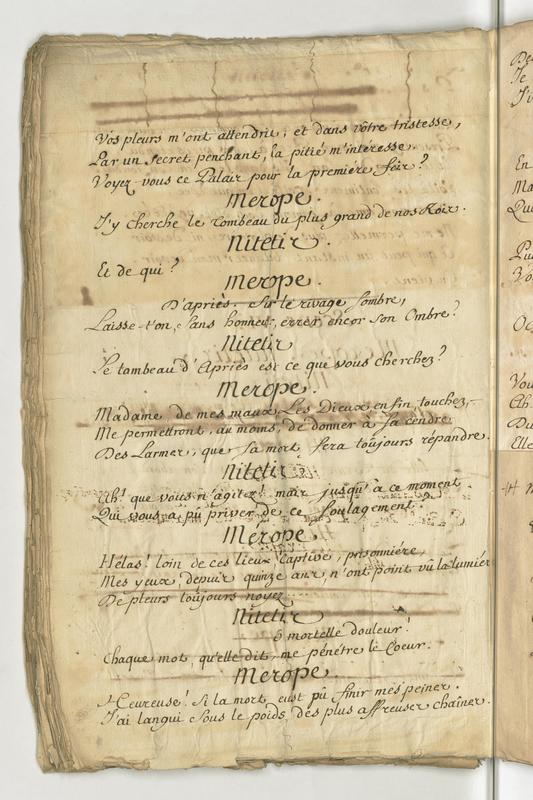 Vos pleurs m'ont attendrit; et dans vôtre tristesse,
Par un secret penchant, la pitié m'interesse.
Voyez vous ce Palais pour la premiére fois?
Merope.
J'y cherche le Tombeau du plus grand de nos Rois.
Nitetis.
Et de qui?
Merope.
D'apriés. Sur le rivage sombre,
Laisse-t'on, sans honneur, errer encor son Ombre?
Nitetis
Le tombeau d'Apriés est ce que vous cherchez?
Merope.
Madame de mes maux Les Dieux enfin touchez,
Me permettront, au moins, de donner à sa cendre
Des Larmes, que sa mort fera toujours répandre.
Nitetis
Ah! que vous m'agitez! mais jusqu'à ce moment
Qui vous a pû priver de ce soulagement?
Merope.
Hélas! loin de ces lieux Captive, prisonniére
Mes yeux, depuis quinze ans n'ont point vû la lumiér
De pleurs toujours noyez
Nitetis
ô mortelle douleur!
Chaque mot, qu'elle dit, me pénétre le Coeur.
Merope.
Heureuse! Si la mort eust pû finir mes peines.
J'ai langui sous le poids, des plus affreuses chaînes.